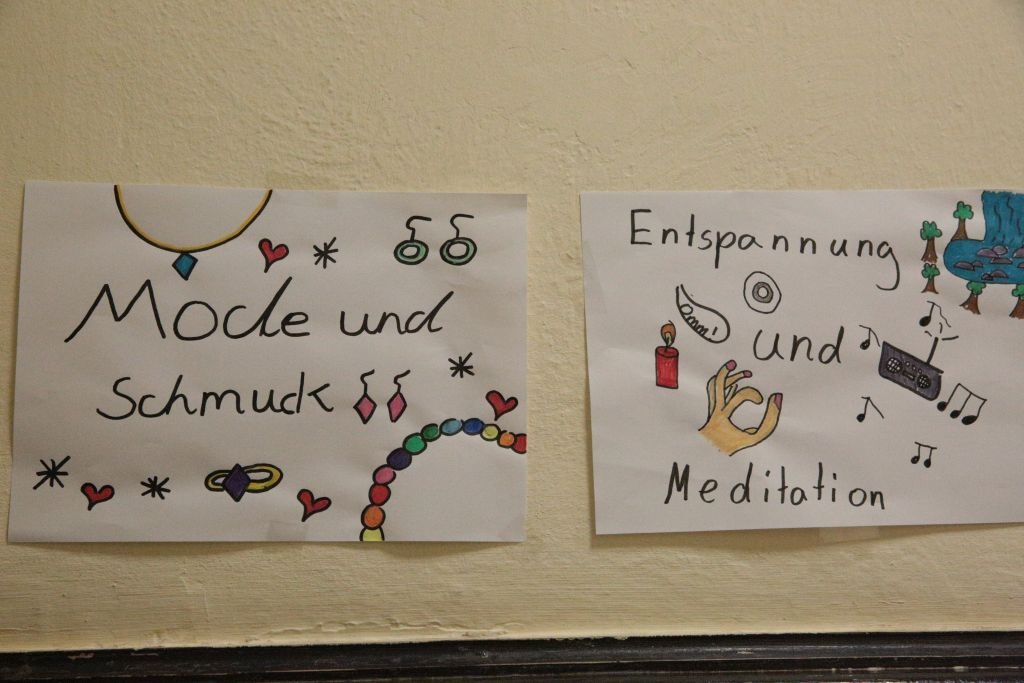 Mode und
Schmuck
Entspannung
Omm!
und
Meditation